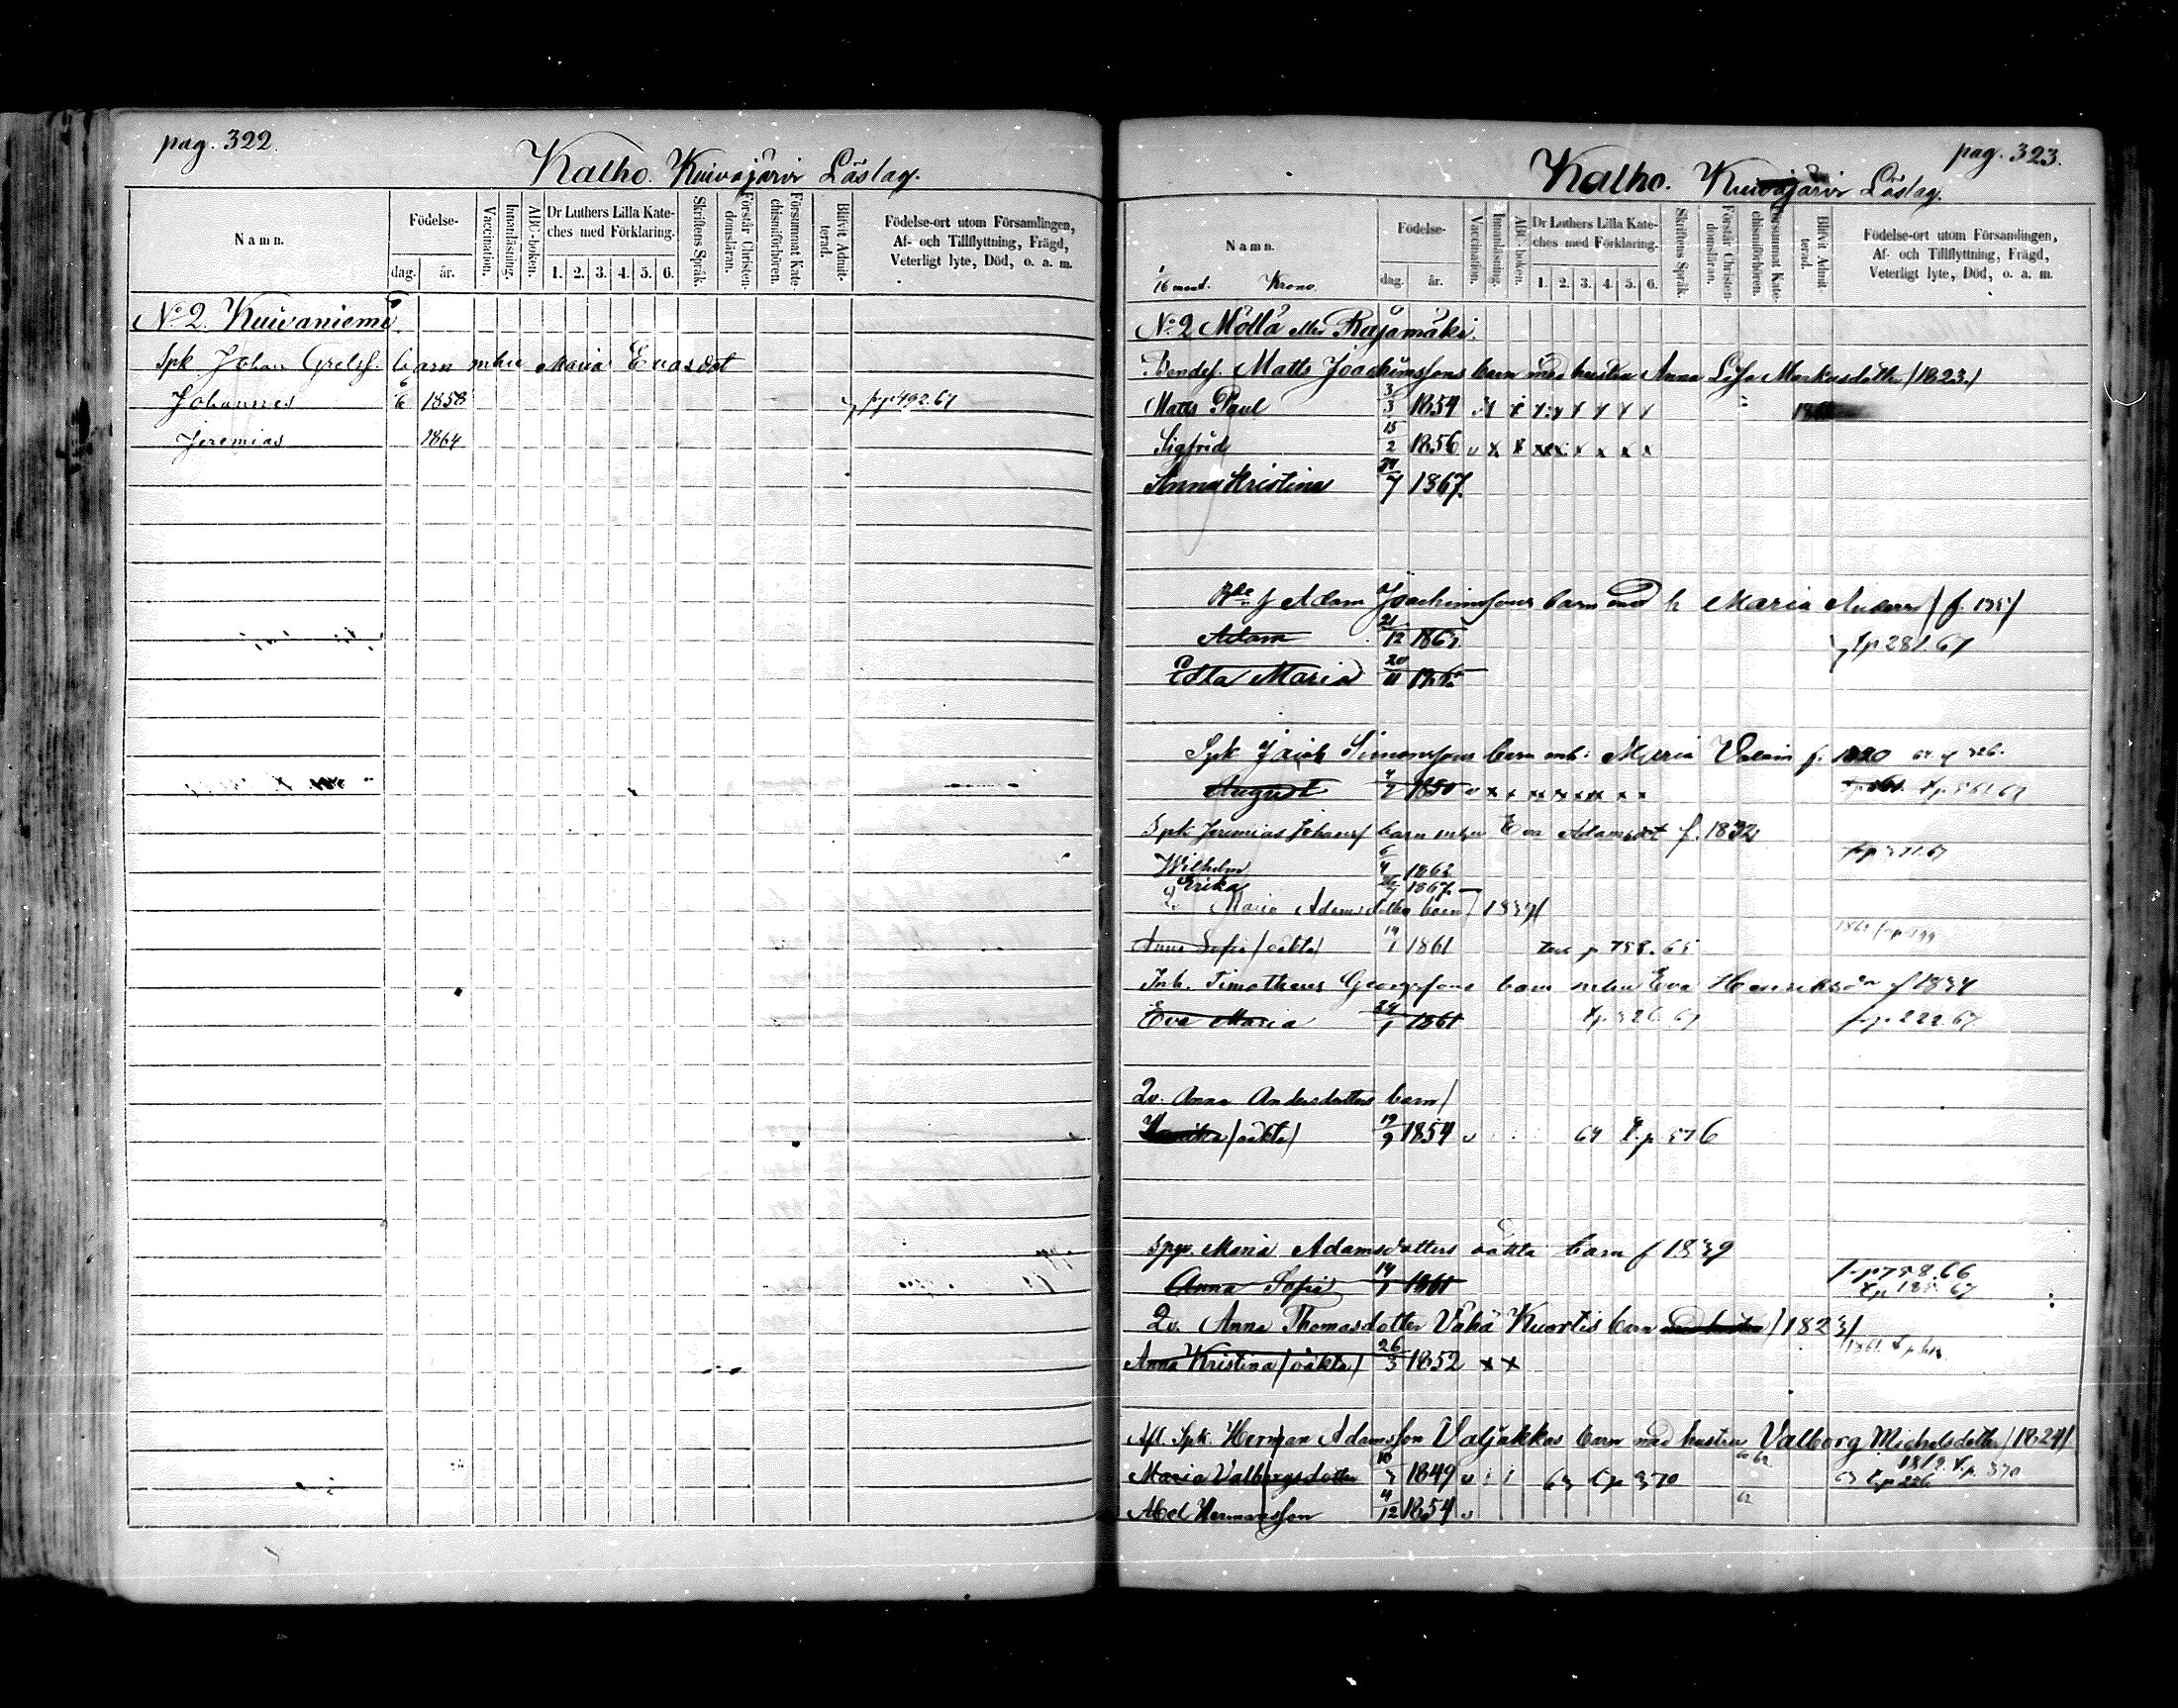 pag. 322.
Kalho. Kuivajärvi Läslag.
Namn.
Födelse-
dag. år.
Vaccination.
Innanläsning.
ABC-boken.
Dr Luthers Lilla Kate-
ches med Förklaring.
1. 2. 3. 4. 5. 6.
Skriftens Språk.
Förstår Christen-
domsläran.
Försummat Kate-
chismiförhören.
Blifvit Admit-
terad.
Födelse-ort utom Församlingen,
Af- och Tillflyttning, Frägd,
Veterligt lyte, Död, o. a. m.
No 2. Kuivaniemi
Spk. Johan Grelsf. barn m hu Maria Evasdot
Johannes 6/6 1858 fr p 492.67
Jeremias 1864
pag. 323.
Kalho. Kuivajärvi Läslag.
Namn.
Födelse-
dag. år.
Vaccination.
Innanläsning.
ABC-boken.
Dr Luthers Lilla Kate-
ches med Förklaring.
1. 2. 3. 4. 5. 6.
Skriftens Språk.
Förstår Christen-
domsläran.
Försummat Kate-
chismiförhören.
Blifvit Admit-
terad.
Födelse-ort utom Församlingen,
Af- och Tillflyttning, Frägd,
Veterligt lyte, Död, o. a. m.
16 mant. Krono
No 2 Möllä eller Rajamäki.
Bondef. Matts Joachimssons barn med hustru Anna Lisa Markusdotter (1823)
Matts Paul 3/3 1854
Sigfrid 15/2 1856 v x x x x x x x x
Anna Kristina 1867.
Adam Joachimssons barn med h Maria (f. 135)
Adam 21/12 1863 tp 281.67
Edla Maria 20/11 1865
Spk Simonssons barn mh: Maria f. 1820
August 1850 v x x x x x x x x
Spk Jeremias Johansf barn m hu Eva Adamsdot f. 1832
Wilhelm 6/4 1862
Erika 1867
Q. Maria Adamsdotters barn (1839)
Anna Sofia (oäkta) 14/1 1861 p 758.65
Inh. Timotheus Georgssons barn m hu Eva Henriksdr f 1834
Eva Maria 24/1 1861 tp. 326 67 fr p. 222.67
Qv. Anna Andersdotters barn/
(oäkta) 19/9 1854 v 64 t.p 576
Spgv. Maria Adamsdotters oäkta barn f 1839
Anna Sofia 14/1 1861 fr p 758.66
tp 185.67
Qv. Anna Thomasdotter Vähä Kuortis barn med hustru (1823)
Anna Kristina (oäkta) 26/3 1852 x x
Afl. Spk. Herman Adamsson Valjakkas barn med hustru Valborg Michelsdotter (1824)
Maria Valborgsdotter 1849 v 63 tp 370
Abel Hermansson 4/12 1854 v 62